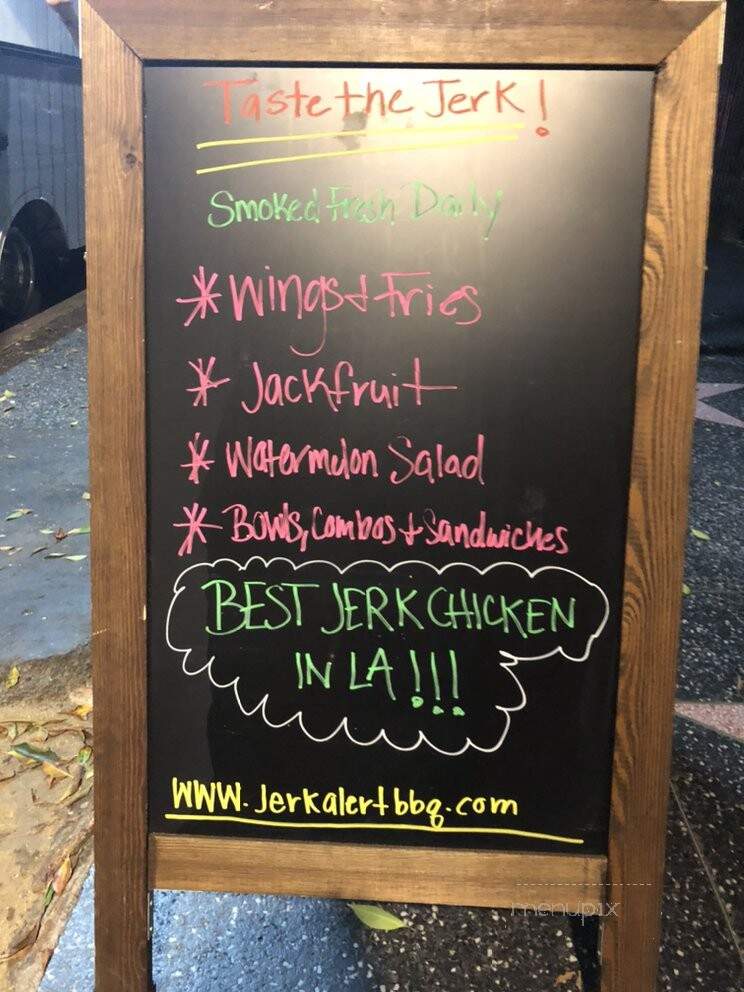 Taste the Jerk!
Smoked Fresh Daily
* Wings + Fries
* Jackfruit
* Watermelon Salad
* Bowls, Combos + Sandwiches
BEST JERK CHICKEN
IN LA!!!
www.jerkalertbbq.com
menupix